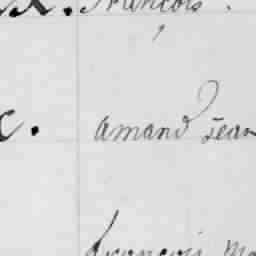 x. François
c. amand Jean
françois Ma